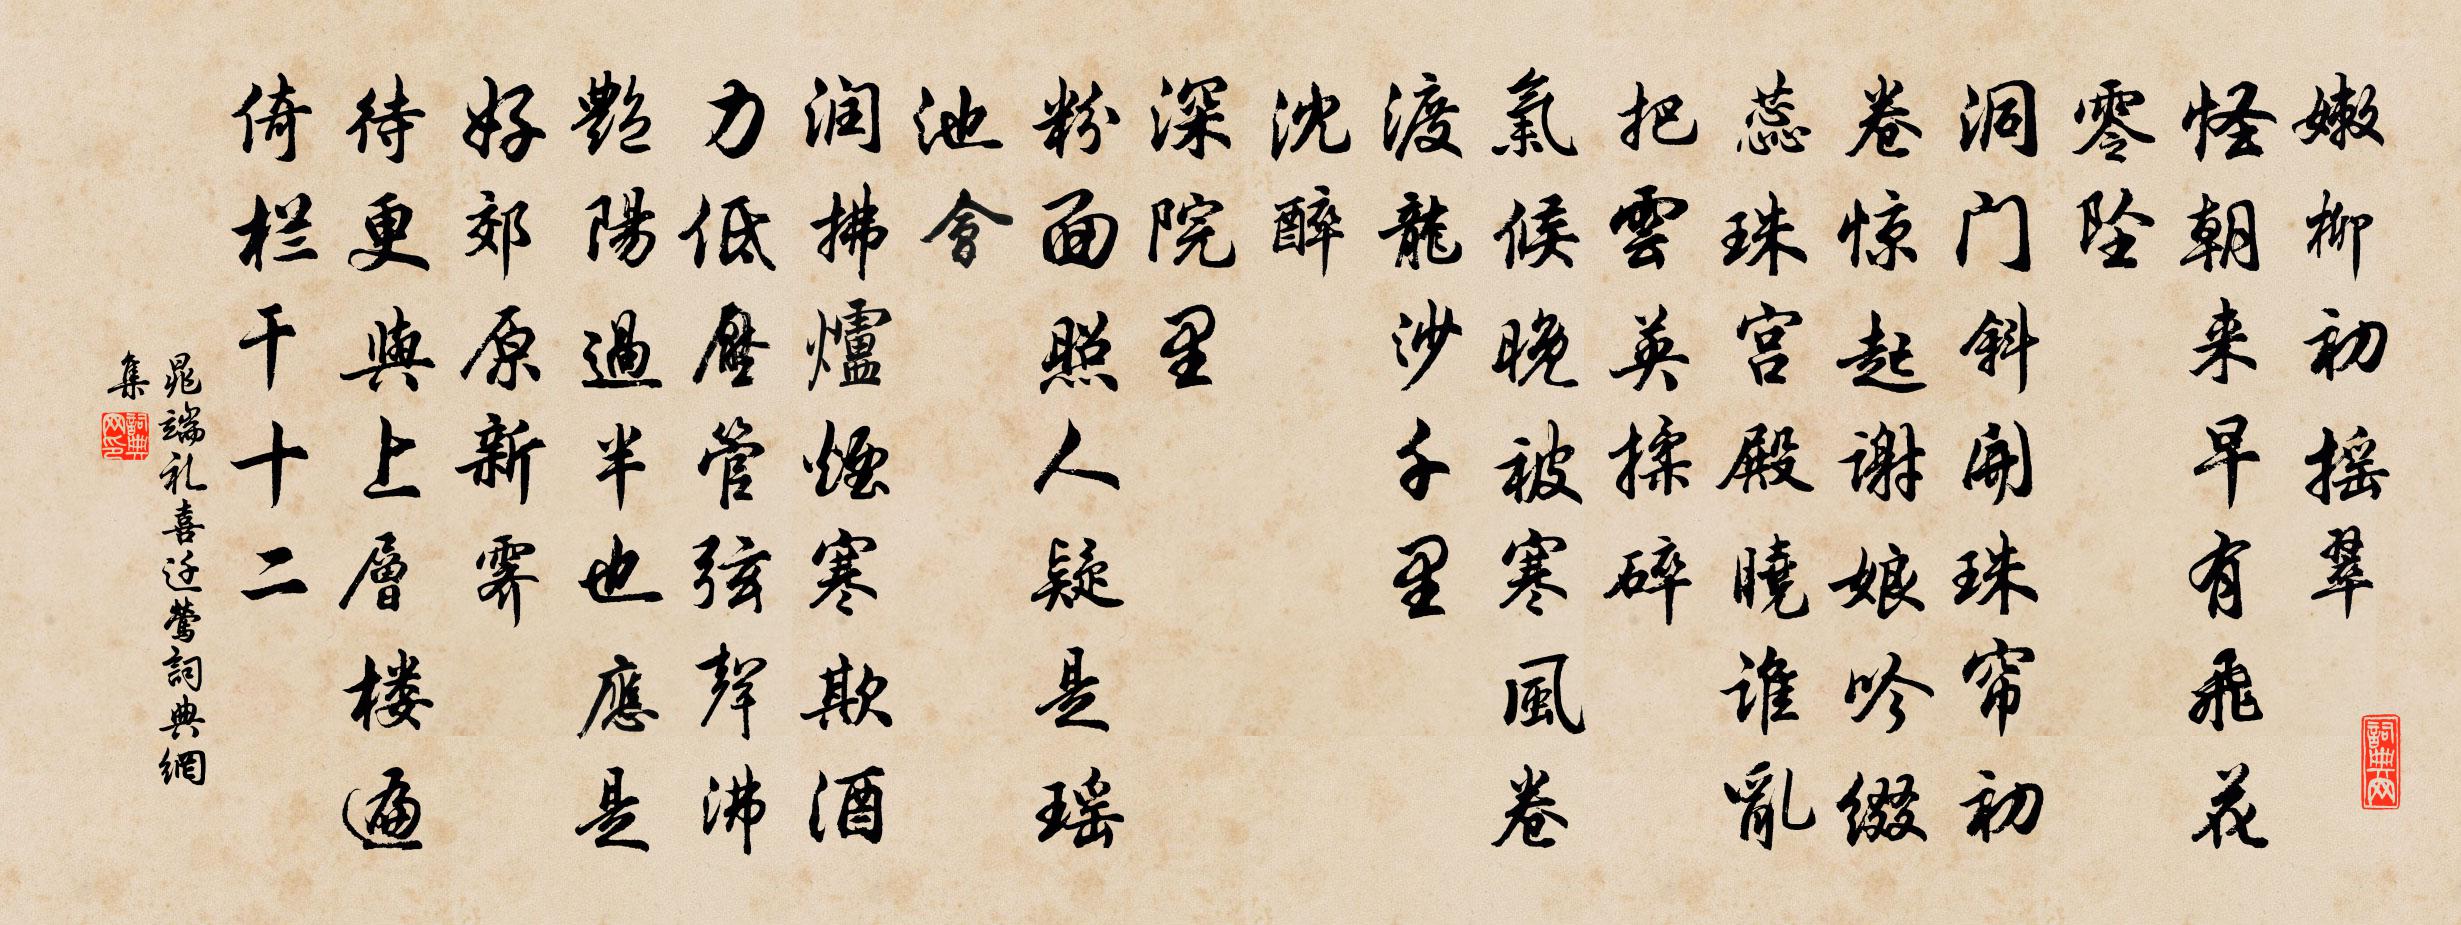 嫩柳初摇翠
怪朝来早有飛花
零坠
洞门斜開珠帘初
卷惊起谢娘吟缀
蕊珠宫殿曉谁亂
把雲英揉碎
氣候晚被寒風卷
渡龍沙千里
沈醉
深院里
粉面照人疑是瑶
池會
润拂爐煙寒欺酒
力低壓管弦聲沸
艷陽過半也應是
好郊原新霽
待更與上層楼遍
倚栏干十二
晁端礼喜迁鶯詞典網
集